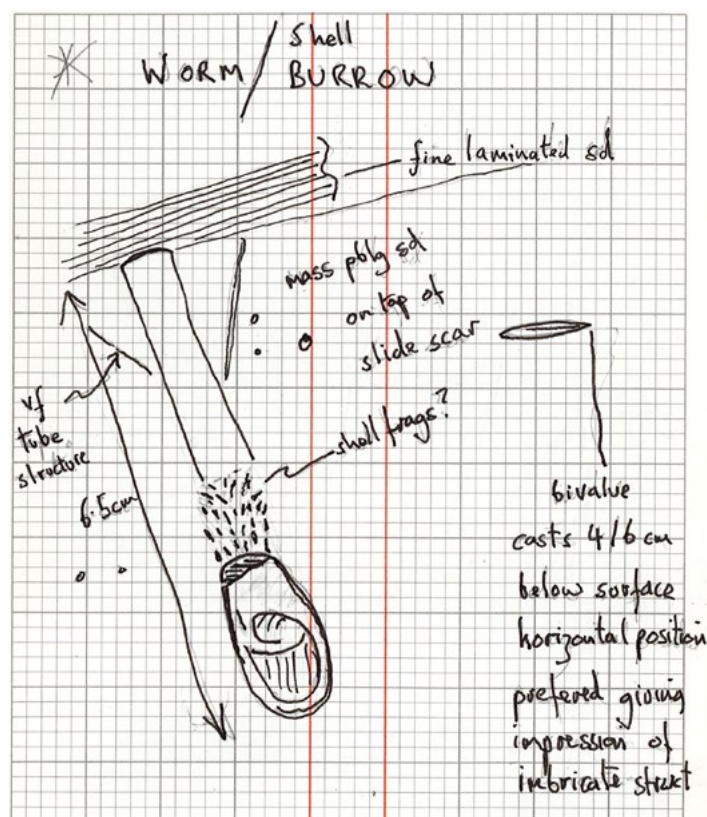 * WORM / Shell
BURROW
fine laminated sd
mass pbly sd
on top of
slide scar
vf
tube
structure
6.5cm
shell frags?
bivalve
casts 4/6 cm
below surface
horizontal position
prefered giving
impression of
imbricate struct